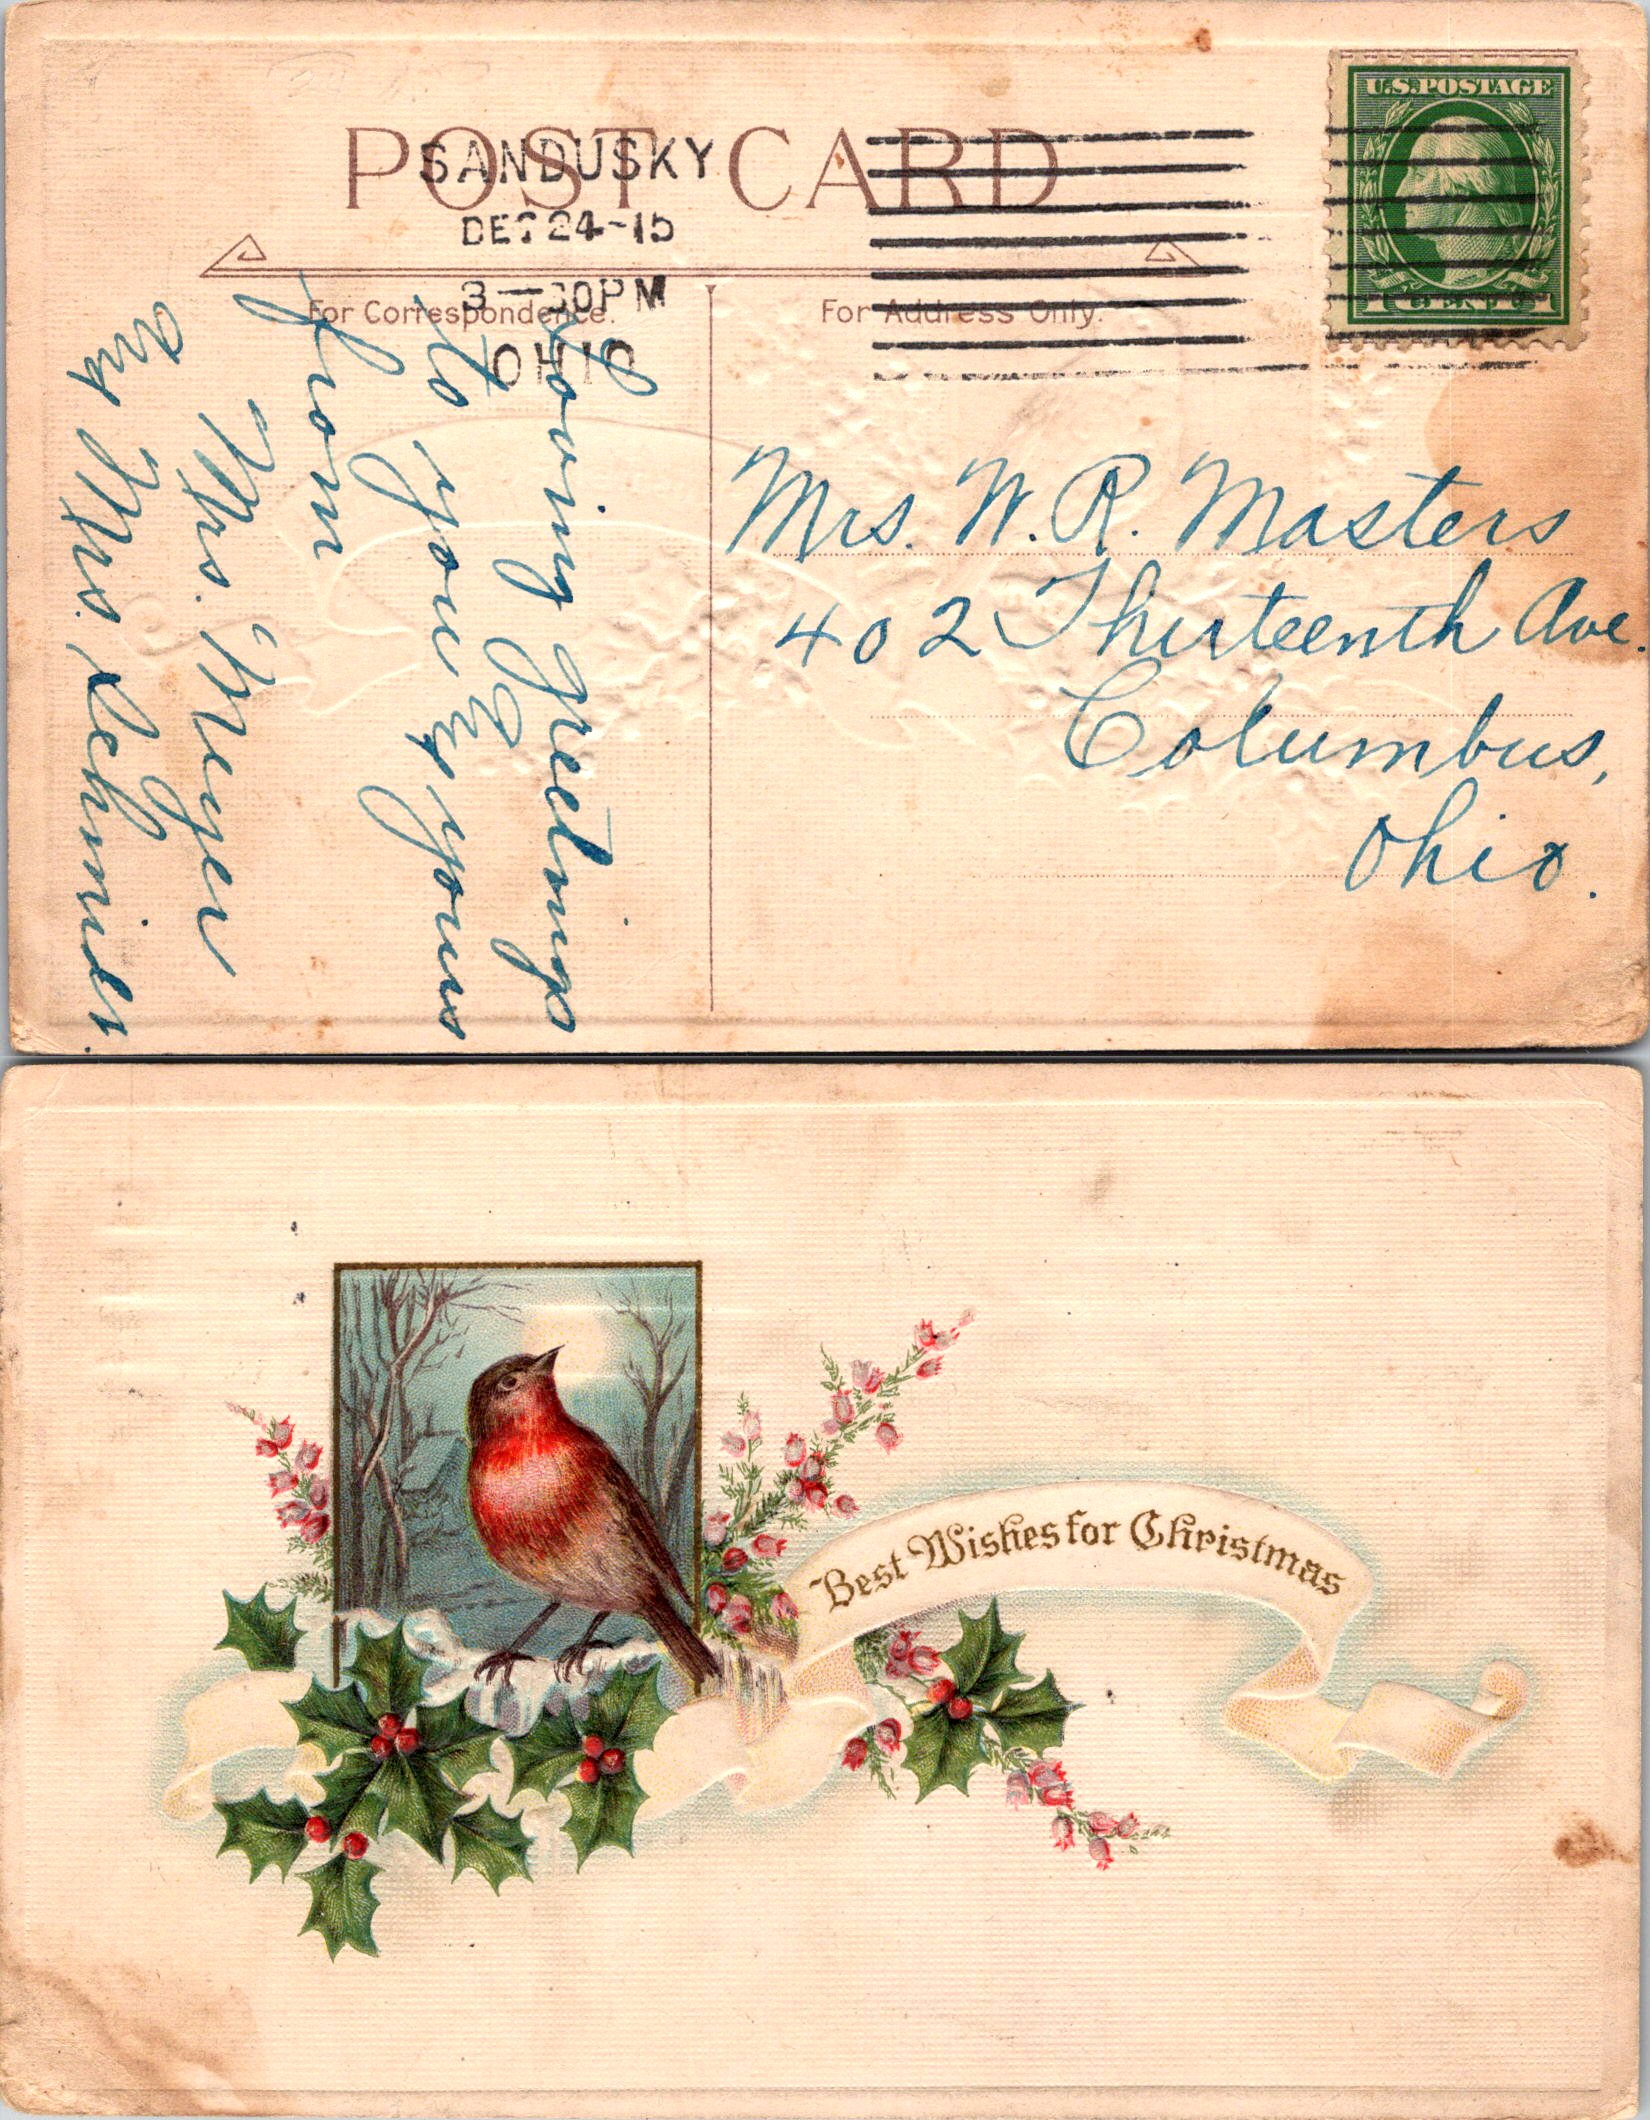 POST CARD
SANDUSKY
DEC 24-15
3-30PM
OHIO
U.S. POSTAGE
1 CENT 1
For Correspondence.
For Address Only.
Loving greetings
to you & yours
from
Mrs. Meyer
and Mrs. Schmidt.
Mrs. W. R. Masters
402 Thirteenth Ave.
Columbus,
Ohio.
Best Wishes for Christmas